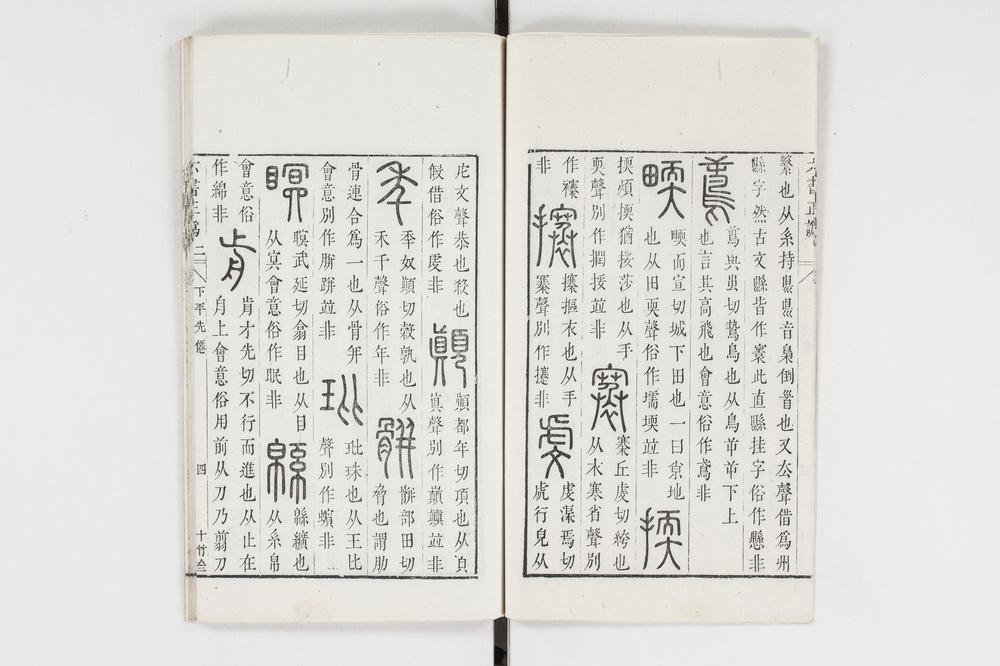 繫也从系持𥄉𥄉音梟倒𩠐也又厺聲借爲州
縣字然古文縣皆作寰此直縣挂字俗作懸非
鳶
鳶與專切鷙鳥也从鳥
下上
也言其高飛也會意俗作鳶非
畂而宣切城下田也一曰
地
也从田耎聲俗作壖堧竝非
㨎
㨎煩㨎猶挼莎也从手
耎聲別作撋挼竝非
褰丘虔切絝也
从衣寒省聲別
作襍非
攐
攐摳衣也从手
褰聲別作攓非
虔
虔渠焉切
虎行皃从
虍文聲恭也殺也
假借俗作虔非
顚
顚都年切頂也从頁
眞聲別作巔巓竝非
秊
秊奴顚切穀孰也从
禾千聲俗作年非
骿
骿部田切
脅也謂肋
骨連合爲一也从骨幷
會意別作胼跰竝非
玭
玭珠也从王比
聲別作蠙非
瞑
瞑武延切翕目也从目
从冥會意俗作眠非
緜
緜纊也
从系帛
會意俗
作綿非
歬
歬才先切不行而進也从止在
舟上會意俗用前从刀乃翦刀
六書正譌 二
下平先僊
四
十竹齋